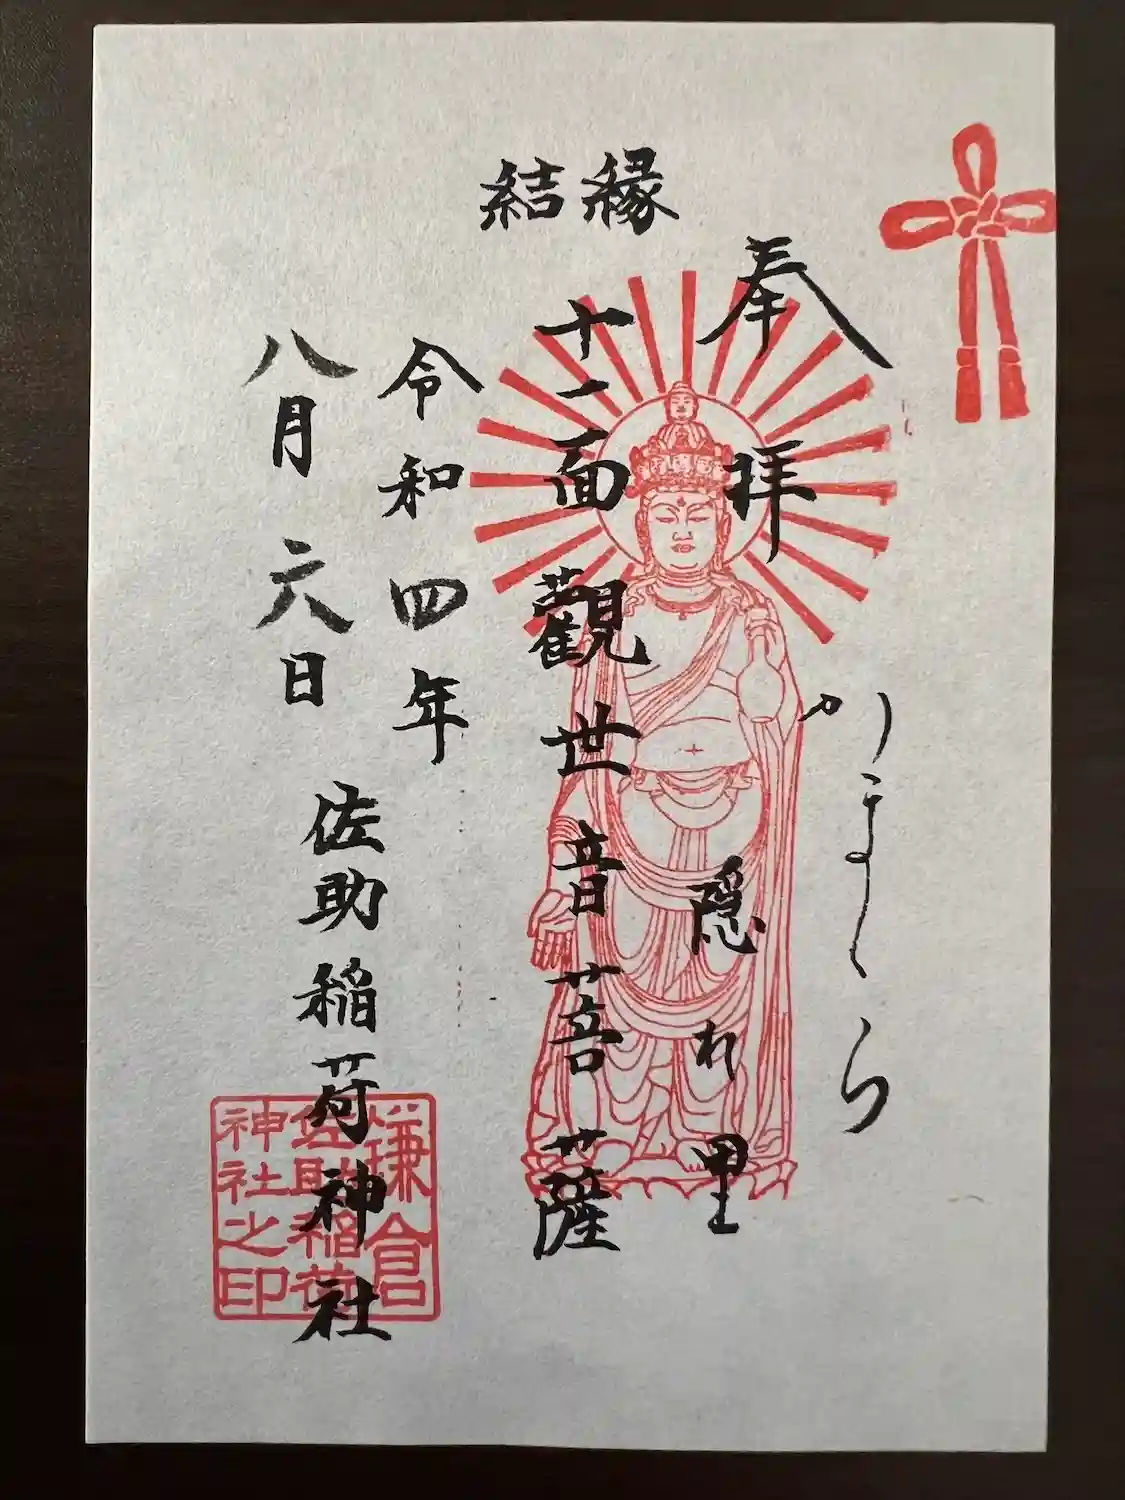 縁結
奉拝
かまくら
隠れ里
十一面觀世音菩薩
令和四年
八月六日
佐助稲荷神社
鎌倉
佐助稲荷
神社之印